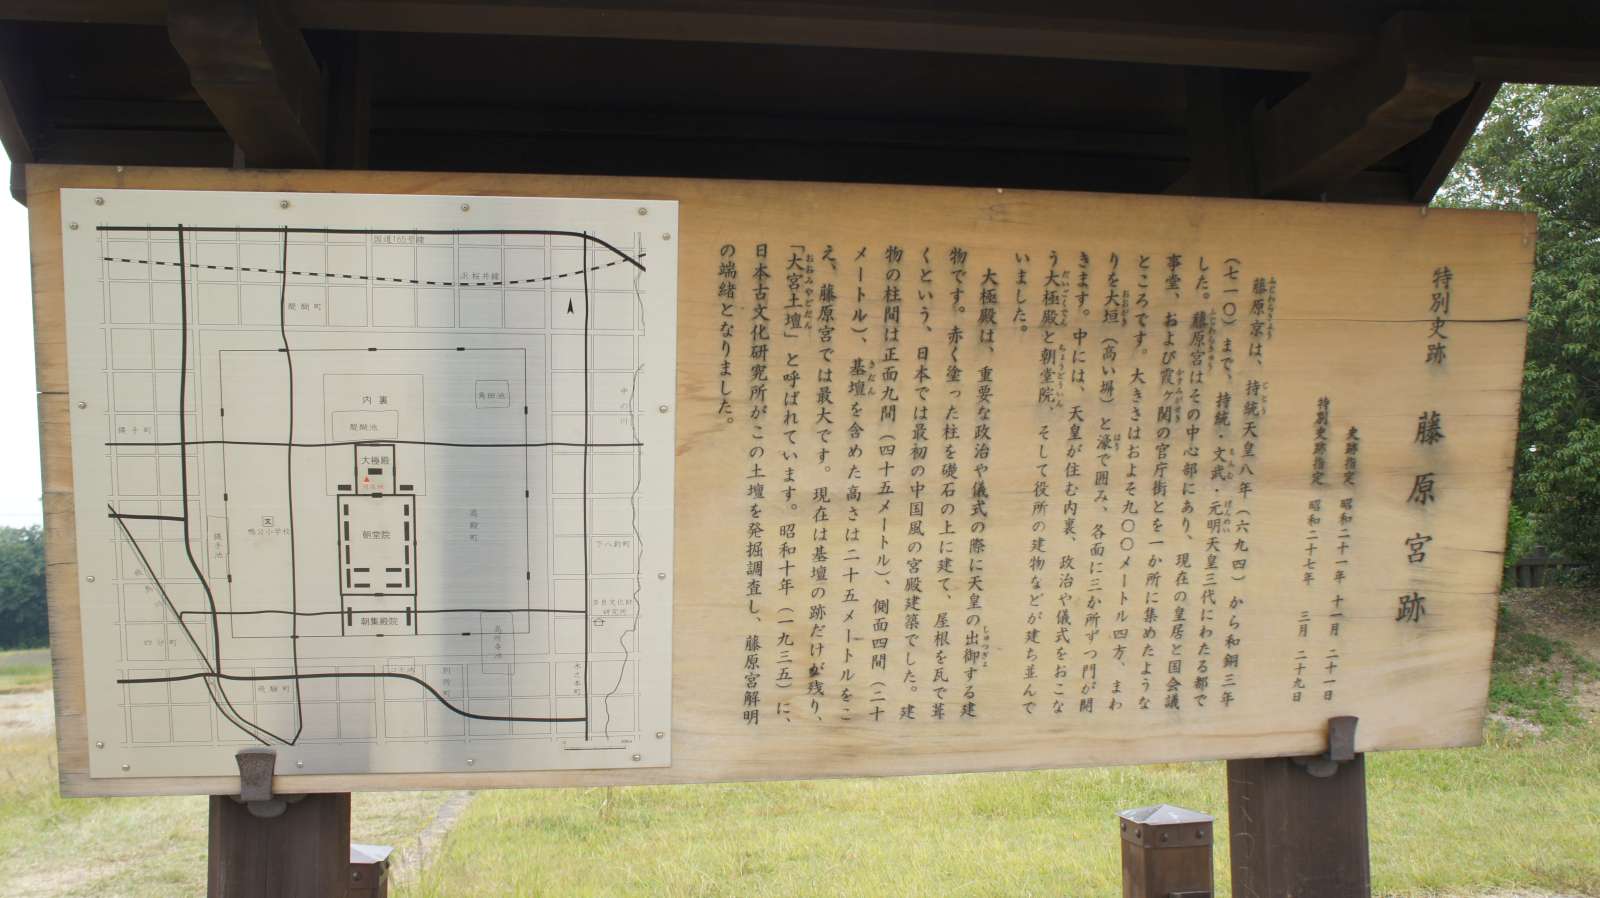 特別史跡 藤原宮跡
史跡指定 昭和二十一年 十一月 二十一日
特別史跡指定 昭和二十七年 三月 二十九日
藤原京は、持統天皇八年(六九四)から和銅三年
(七一〇)まで、持統・文武・元明天皇三代にわたる都で
した。藤原宮はその中心部にあり、現在の皇居と国会議
事堂、および霞ヶ関の官庁街とを一か所に集めたような
ところです。大きさはおよそ九〇〇メートル四方、まわ
りを大垣(高い塀)と濠で囲み、各面に三か所ずつ門が開
きます。中には、天皇が住む内裏、政治や儀式をおこな
う大極殿と朝堂院、そして役所の建物などが建ち並んで
いました。
大極殿は、重要な政治や儀式の際に天皇の出御する建
物です。赤く塗った柱を礎石の上に建て、屋根を瓦で葺
くという、日本では最初の中国風の宮殿建築でした。建
物の柱間は正面九間(四十五メートル)、側面四間(二十
メートル)、基壇を含めた高さは二十五メートルをこ
え、藤原宮では最大です。現在は基壇の跡だけが残り、
「大宮土壇」と呼ばれています。昭和十年(一九三五)に、
日本古文化研究所がこの土壇を発掘調査し、藤原宮解明
の端緒となりました。
国道165号線
JR桜井線
醍醐町
内裏
角田池
醍醐池
縄手町
大極殿
中の川
朝堂院
文
鴨公小学校
縄手池
高殿町
下八釣町
飛鳥川
奈良文化財
研究所
朝集殿院
高所寺池
四分町
別所町
木之本町
飛騨町